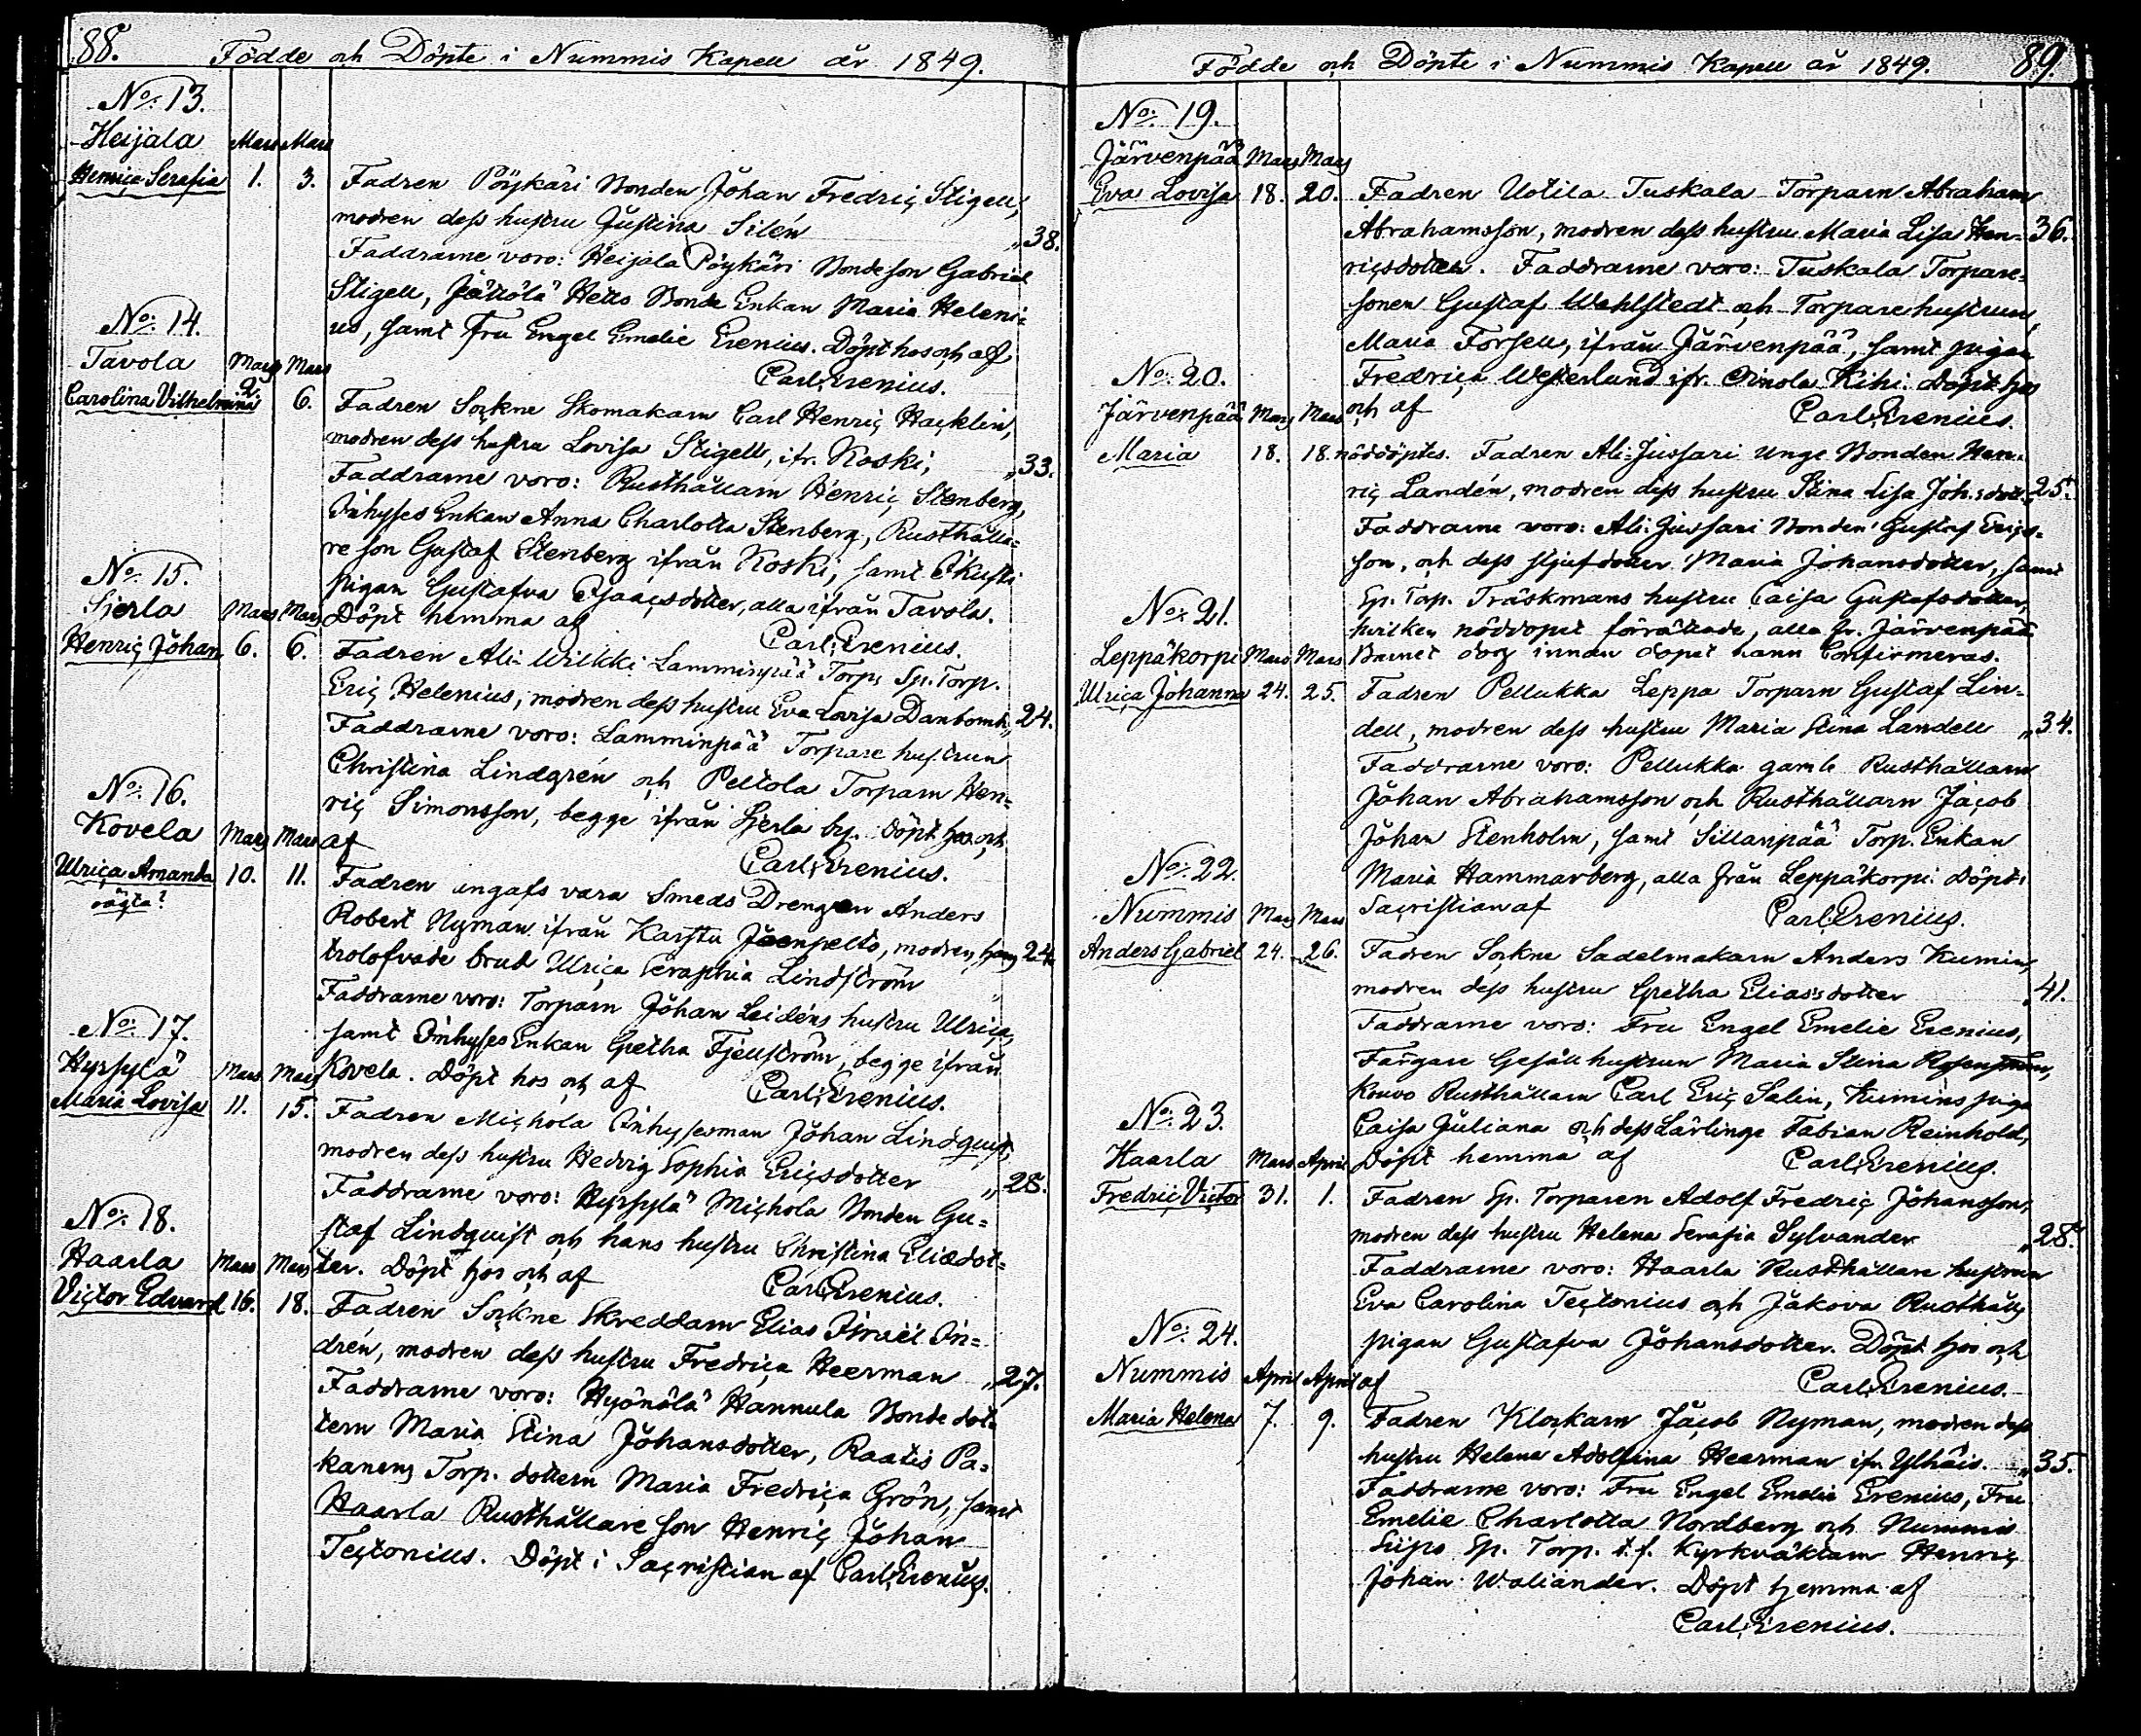 88.
Födde och Döpte i Nummis Kapell år 1849.
No: 13.
Heijala Mars Mars
Henrica Serafia 1. 3. Fadren Pöykäri Bonden Johan Fredric Stigell,
modren dess hustru Justina Silén „38.
Faddrarne voro: Heijala Pöykäri Bondeson Gabriel
Stigell, Jättölä Hetto Bonde Enkan Maria Heleni=
us, samt Fru Engel Emelie Erenius. Döpt hos och af
Carl Erenius.
No: 14.
Tavola Mars Mars
Carolina Vilhelmina 2. 6. Fadren Sockne Skomakarn Carl Henric Hacklin,
modren dess hustru Lovisa Stigell, ifr. Koski, „33.
Faddrarne voro: Rusthållarn Henric Stenberg,
Inhyses Enkan Anna Charlotta Stenberg, Rusthålla=
re son Gustaf Stenberg ifrån Koski, samt
pigan Gustafva Isaacsdotter, alla ifrån Tavola.
Döpt hemma af
Carl Erenius.
No: 15.
Sjerla Mars Mars
Henric Johan 6. 6. Fadren Ali-Wilkki Lamminpää Torps Sp. Torp.
Eric Helenius, modren dess hustru Eva Lovisa Danbom „24.
Faddrarne voro: Lamminpää Torpare hustrun
Christina Lindgrén och Peltola Torparn Hen=
ric Simonsson, begge ifrån Sjerla by. Döpt hos och
af
Carl Erenius.
No: 16.
Kovela Mars Mars
Ulrica Amanda 10. 11. Fadren angafs vara Smeds Drengen Anders
oägta!
Robert Nyman ifrån Karstu Joenpelto, modren, hans 24.
trolofvade brud Ulrica Seraphia Lindström „
Faddrarne voro: Torparn Johan Leidéns hustru Ulrica,
samt Inhyses Enkan Gretha Fjellström, begge ifrån
Kovela. Döpt hos och af
Carl Erenius.
No: 17.
Hyrsylä Mars Mars
Maria Lovisa 11. 15. Fadren Michola Inhysesman Johan Lindquist,
modren dess hustru Hedvig Sophia Ericsdotter „28.
Faddrarne voro: Hyrsylä Michola Bonden Gu=
staf Lindquist och hans hustru Christina Eliædot=
ter. Döpt hos och af
Carl Erenius.
No: 18.
Haarla Mars Mars
Victor Edvard 16. 18. Fadren Sockne Skreddarn Elias Israël In=
drén, modren dess hustru Fredrica Heerman „27.
Faddrarne voro: Hyönölä Hannula Bonde dot=
tern Maria Stina Johansdotter, Raatis Pa=
kanens Torp. dottern Maria Fredrica Grön, samt
Haarla Rusthållare son Henric Johan
Tectonius. Döpt i Sacristian af Carl Erenius.
Födde och Döpte i Nummis Kapell år 1849.
89.
No: 19.
Järvenpää Mars Mars
Eva Lovisa 18. 20. Fadren Uotila Tuskala Torparn Abraham
Abrahamsson, modren dess hustru Maria Lisa Hen= 36.
ricsdotter. Faddrarne voro: Tuskala Torpare=
sonen Gustaf Wahlstedt och Torparehustrun
Maria Forsell, ifrån Järvenpää, samt pigan
Fredrica Westerlund ifr. Oinola Kihi. Döpt hos
och af
Carl Erenius.
No: 20.
Järvenpää Mars Mars
Maria 18. 18. nöddöptes. Fadren Ali-Jussari unge Bonden Hen=
ric Landén, modren dess hustru Stina Lisa Joh:sdott. 25.
Faddrarne voro: Ali-Jussari Bonden Gustaf Erics=
son, och dess styfdotter Maria Johansdotter, samt
Sp. Torp. Träskmans hustru Caisa Gustafsdotter,
hvilken nöddopet förrättade, alla fr. Järvenpää.
Barnet dog innan dopet hann Confirmeras.
No: 21.
Leppäkorpi Mars Mars
Ulrica Johanna 24. 25. Fadren Pellukka Leppa Torparn Gustaf Lin=
dell, modren dess hustru Maria Stina Landell „34.
Faddrarne voro: Pellukka gamle Rusthållarn
Johan Abrahamsson och Rusthållarn Jacob
Johan Stenholm, samt Sillanpää Torp. Enkan
Maria Hammarberg, alla från Leppäkorpi. Döpt i
Sacristian af
Carl Erenius.
No: 22.
Nummis Mars Mars
Anders Gabriel 24. 26. Fadren Sockne Sadelmakarn Anders Kumin,
modren dess hustru Gretha Eliasdotter „41.
Faddrarne voro: Fru Engel Emelie Erenius,
Färgare Gesäll hustrun Maria Stina
Kouvo Rusthållarn Carl Eric Salin, Kumins piga
Caisa Juliana och dess Lärlinge Fabian Reinhold,
Döpt hemma af
Carl Erenius.
No: 23.
Haarla Mars April
Fredric Victor 31. 1. Fadren Sp. Torparen Adolf Fredric Johansson,
modren dess hustru Helena Serafia Sylvander „28.
Faddrarne voro: Haarla Rusthållare hustrun
Eva Carolina Tectonius och Jakova Rusthålls
pigan Gustafva Johansdotter. Döpt hos och
af
Carl Erenius.
No: 24.
Nummis April April
Maria Helena 7. 9. Fadren Klockarn Jacob Nyman, modren dess
hustru Helena Adolfina Heerman ifr. Ylhäis. „35.
Faddrarne voro: Fru Engel Emelie Erenius, Fru
Emelie Charlotta Nordberg och Nummis
Siipo Sp. Torp. t.f. Kyrkväktarn Henric
Johan Waliander. Döpt hemma af
Carl Erenius.